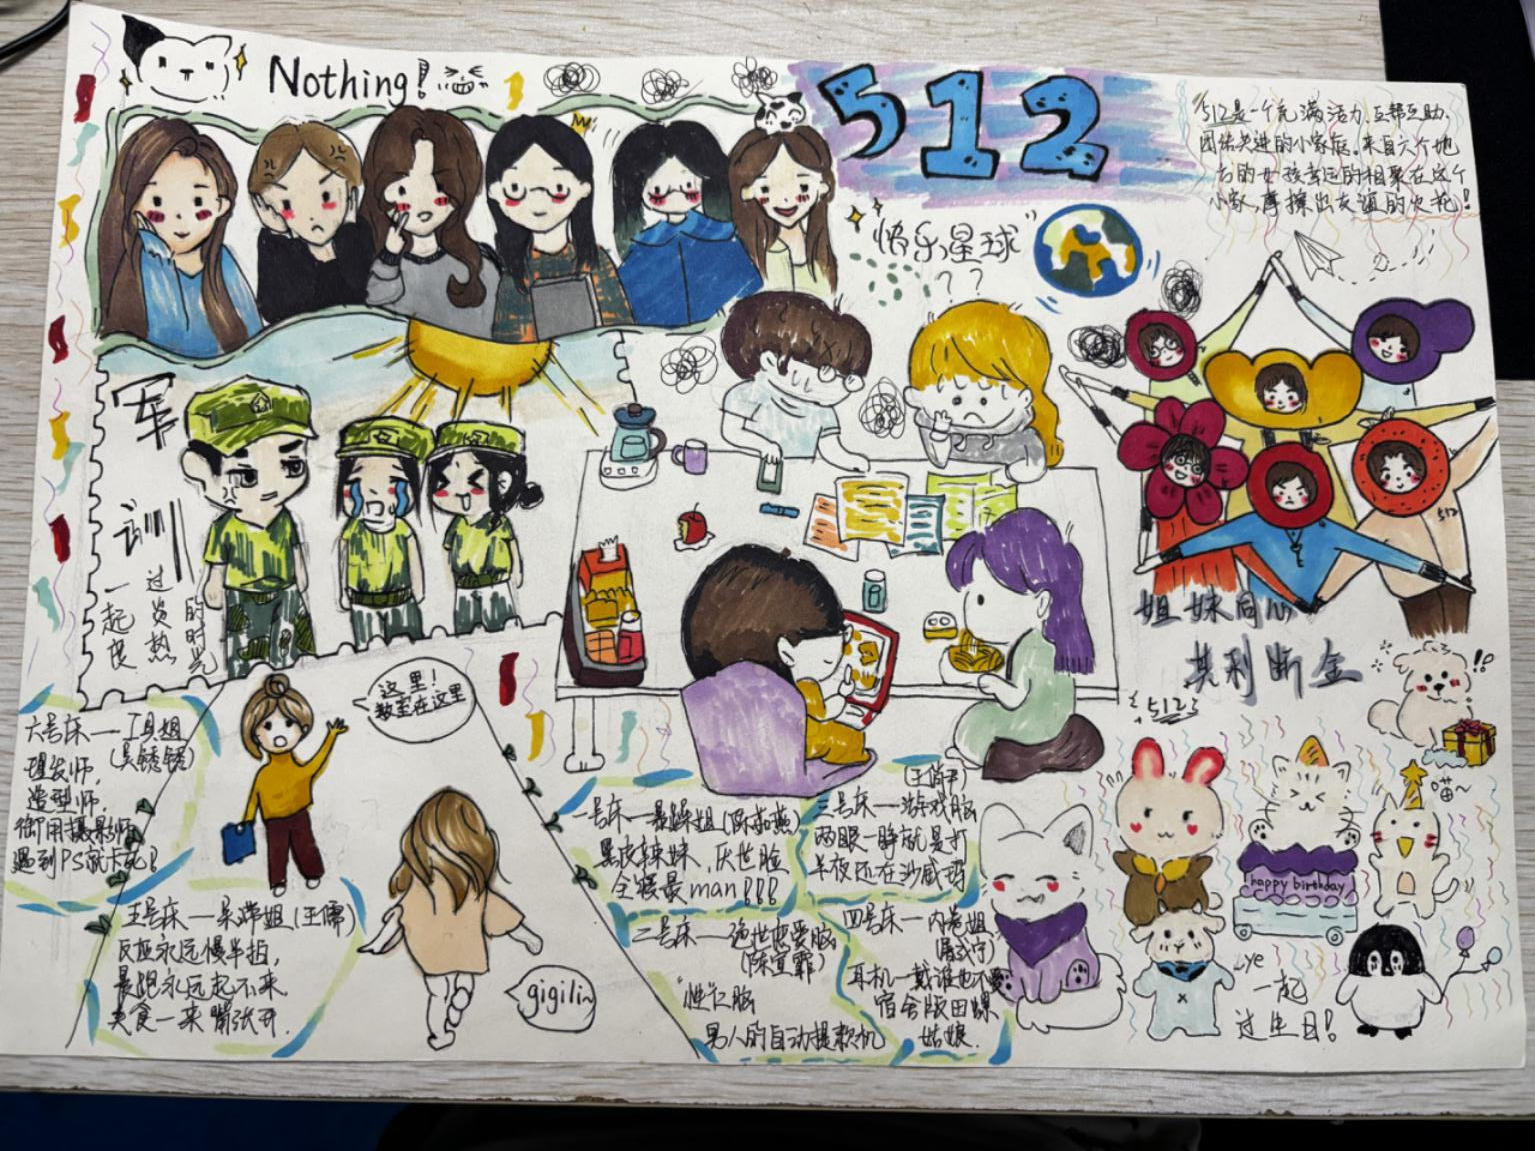 Nothing!
512
512是一个充满活力、互帮互助、
团结共进的小家庭。来自六个地
方的女孩幸运的相聚在这个
小家,摩擦出友谊的火花!
"快乐星球"
??
军训
一起度
过炎热
的时光
姐妹同心
其利断金
512
512
这里!
教室在这里
六号床——工具姐
(吴锈锈)
理发师,
造型师,
御用摄影师
遇到PS就卡死!
五号床—呆滞姐(王儒)
反应永远慢半拍,
早起永远起不来
美食一来嘴张开.
gigili~
一号床—暴躁姐
黑皮辣妹,厌世脸
全寝最man!!!
二号床——绝世恋爱脑
(陈宣霏)
"性"仁脑
男人的自动提款机
三号床——游戏脑
两眼一睁就是打
半夜还在沙威玛
四号床—内卷姐
耳机一戴谁也不爱
宿舍版田螺
姑娘.
!?
喵~
happy birthday
一起
过生日!